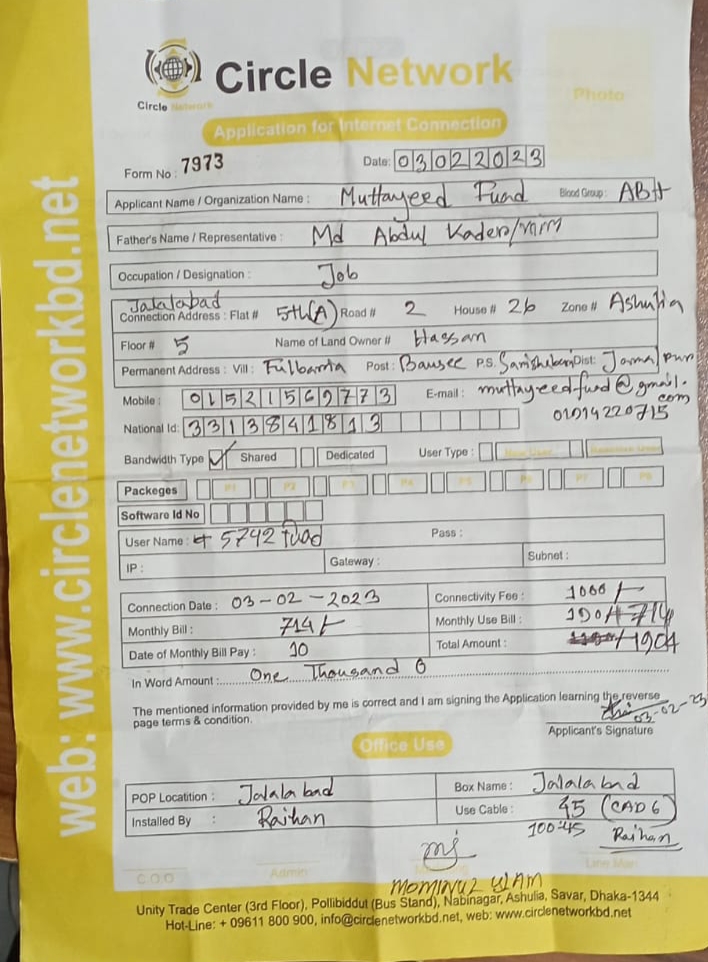 Circle Network
Circle Network
Photo
Application for Internet Connection
Form No : 7973 Date: 03022023
Applicant Name / Organization Name : Muttayeed Fuad Blood Group :
Father's Name / Representative : Md Abdul Kader/
Occupation / Designation : Job
Jalalabad
Connection Address : Flat # 5th(A) Road # 2 House # 26 Zone # Ashulia
Floor # 5 Name of Land Owner # Hassan
Permanent Address : Vill : Post : Bausee P.S. Dist: Jamalpur
Mobile : 01521569773 E-mail : muttayeedfuad@gmail.com
National Id: 3313841813
Bandwidth Type Shared Dedicated User Type :
Packeges P1 P2 P3 P4 P5 P6 P7 P8
Software Id No
User Name : 5742fuad Pass :
IP : Gateway : Subnet :
Connection Date : 03-02-2023 Connectivity Fee : 1000/-
Monthly Bill : 714/- Monthly Use Bill :
Date of Monthly Bill Pay : 10 Total Amount :
In Word Amount : One Thousand
The mentioned information provided by me is correct and I am signing the Application learning the reverse
page terms & condition.
03-02-23
Applicant's Signature
Office Use
POP Locatition : Jalalabad Box Name : Jalalabad
Installed By : Raihan Use Cable : 45 (CAD6)
100-45 Raihan
C.O.O Admin Line Man
Unity Trade Center (3rd Floor), Pollibiddut (Bus Stand), Nabinagar, Ashulia, Savar, Dhaka-1344
Hot-Line: + 09611 800 900, info@circlenetworkbd.net, web: www.circlenetworkbd.net
web: www.circlenetworkbd.net